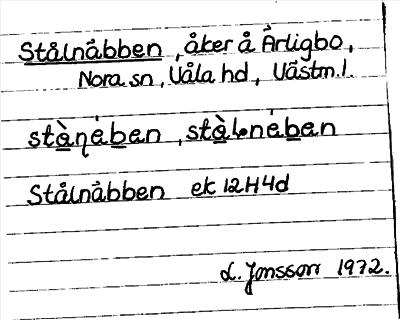 Stålnåbben, åker å Årligbo,
Nora sn, Våla hd, Västm.l.
stàṉéḇen, stàḻnéḇen
Stålnåbben ek 12H4d
L. Jonsson 1972.